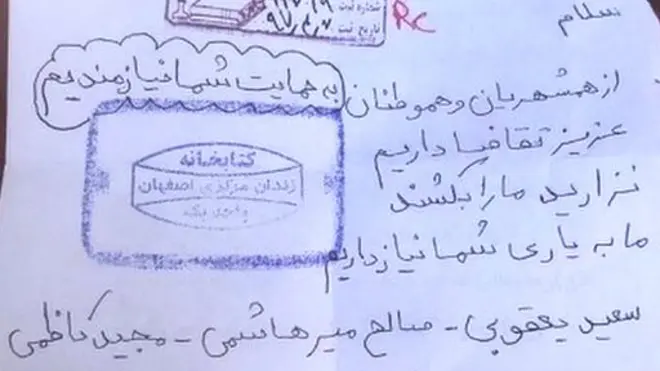 شماره ثبت
تاریخ ثبت
RC
سلام
از همشهریان و هموطنان
به حمایت شما نیازمندیم
عزیز تقاضا داریم
نزارید ما را بکشند
ما به یاری شما نیاز داریم
کتابخانه
زندان مرکزی اصفهان
واحد یک
سعید یعقوبی - صالح میرهاشمی - مجید کاظمی